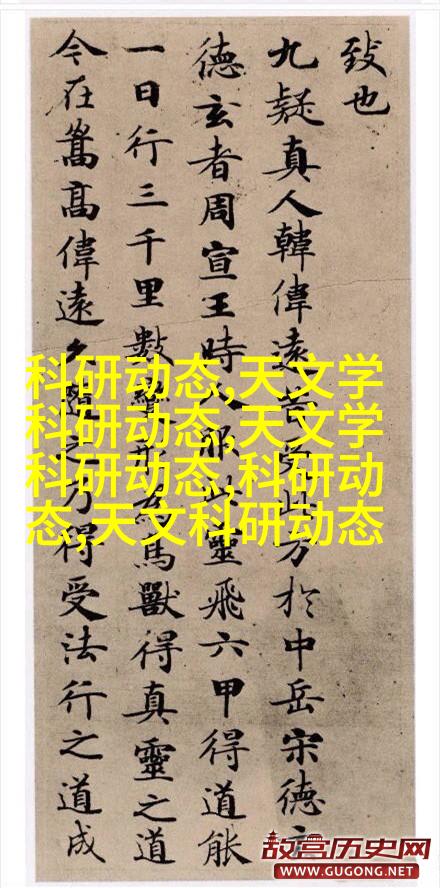 致也
九疑真人韓偉遠昔受此方於中岳宋德
德玄者周宣王時人服此靈飛六甲得道能
一日行三千里數變形為鳥獸得真靈之道
今在嵩高偉遠久隨之乃得受法行之道成
科研动态,天文学
科研动态,天文学
科研动态,科研动
态,天文科研动态
故宫历史网
WWW.GUGONG.NET